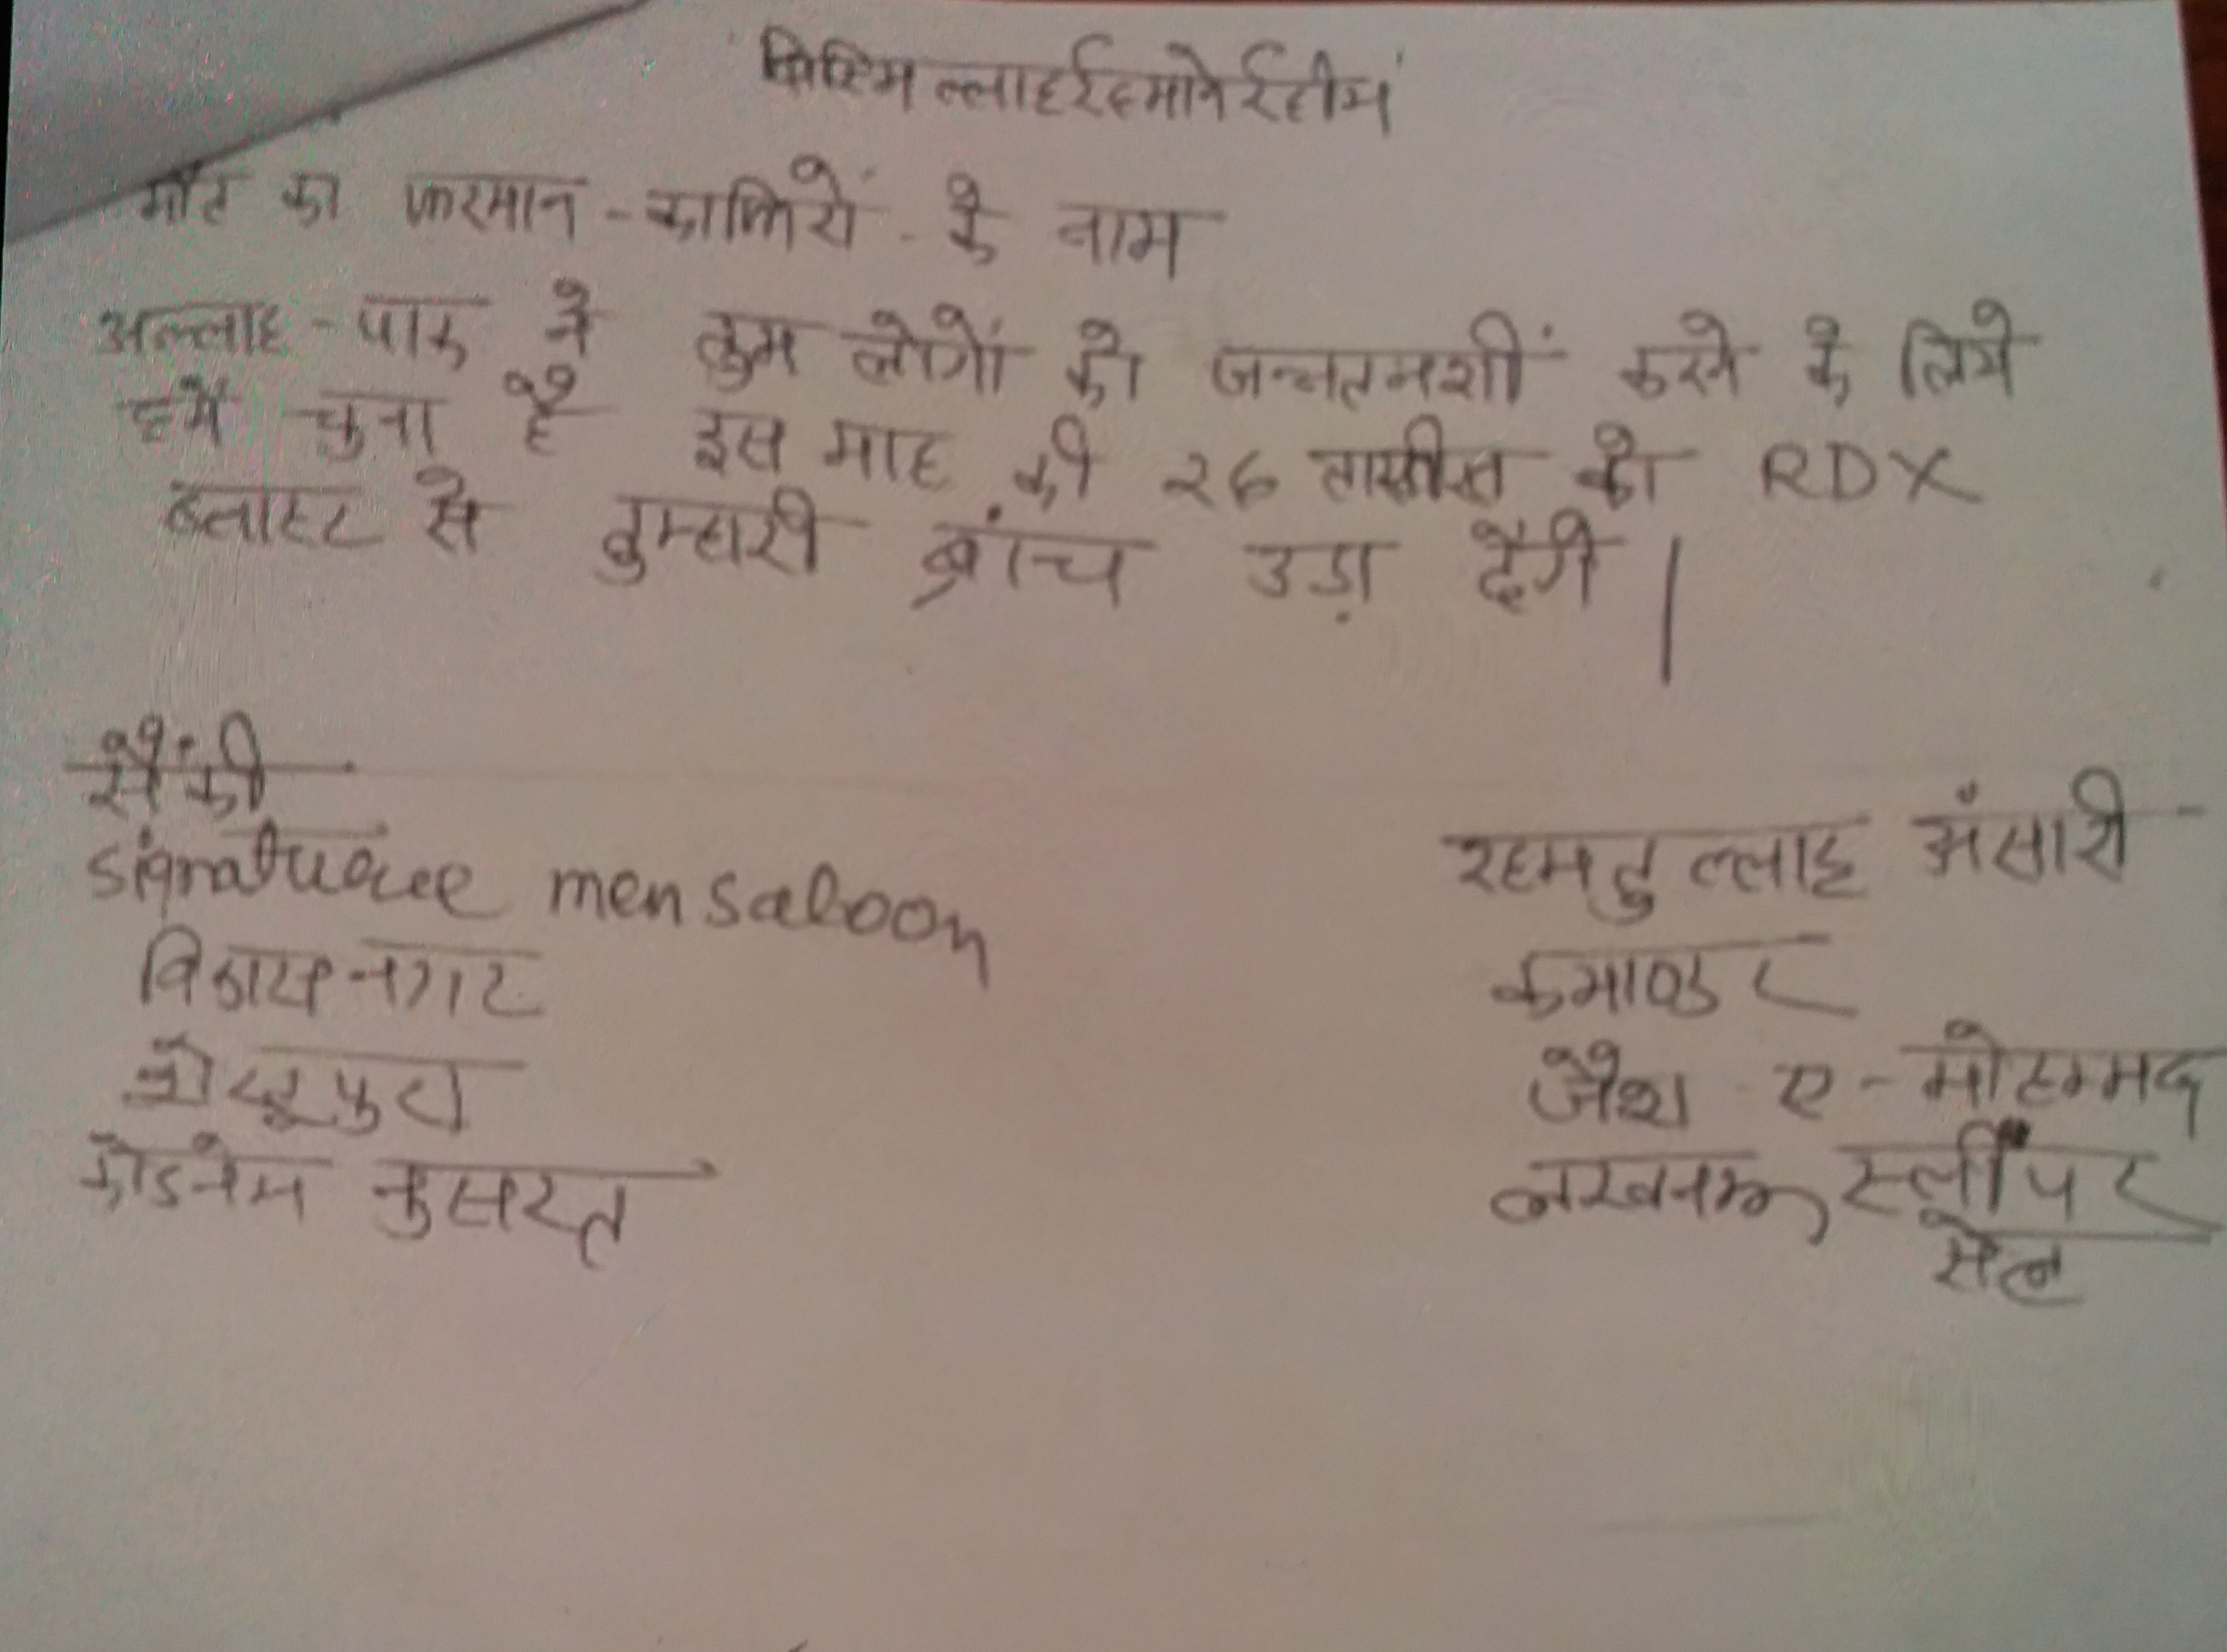 बिस्मिल्लाहर्रहमानेर्रहीम
मौत का फरमान - काफिरों - के नाम
अल्लाह - पाक ने तुम लोगों को जन्नतनशीं करने के लिये
हमें चुना है इस माह की २६ तारीख को RDX
ब्लास्ट से तुम्हारी ब्रांच उड़ा देंगे |
सैंकी
Signature men saloon
विकास नगर
कोडनेम नुसरत
रहमतुल्लाह अंसारी
कमाण्डर
जैश ए - मोहम्मद
लखनऊ स्लीपर
सेल